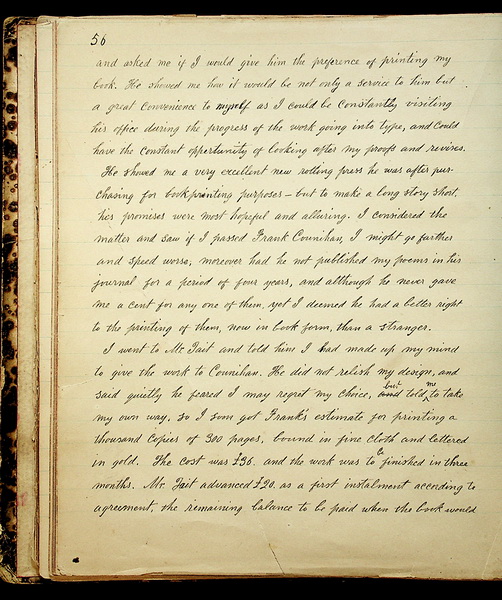 56
and asked me if I would give him the preference of printing my
book. He showed me how it would be not only a service to him but
a great convenience to myself as I could be constantly visiting
his office during the progress of the work going into type, and could
have the constant opportunity of looking after my proofs and revises.
He showed me a very excellent new rotting press he was after pur-
chasing for bookprinting purposes – but to make a long story short,
his promises were most hopeful and alluring. I considered the
matter and saw if I passed Frank Counihan, I might go farther
and speed worse, moreover had he not published my poems in his
journal for a period of four years, and although he never gave
me a cent for any one of them, yet I deemed he had a better right
to the printing of them, now in book form, than a stranger.
I went to Mr. Tait and told him I had made up my mind
to give the work to Counihan. He did not relish my design, and
said quietly he feared I may regret my choice, and but told me to take
my own way, so I soon got Frank's estimate for printing a
thousand copies of 300 pages, bound in fine cloth and lettered
in gold. The cost was £36. and the work was to be finished in three
months. Mr. Tait advanced £20. as a first instalment according to
agreement, the remaining balance to be paid when the book would